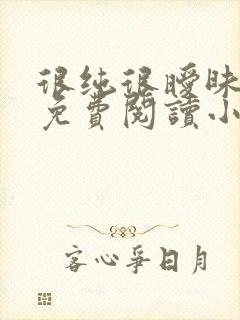 很纯很暧昧
免費閱讀小
客心爭日月